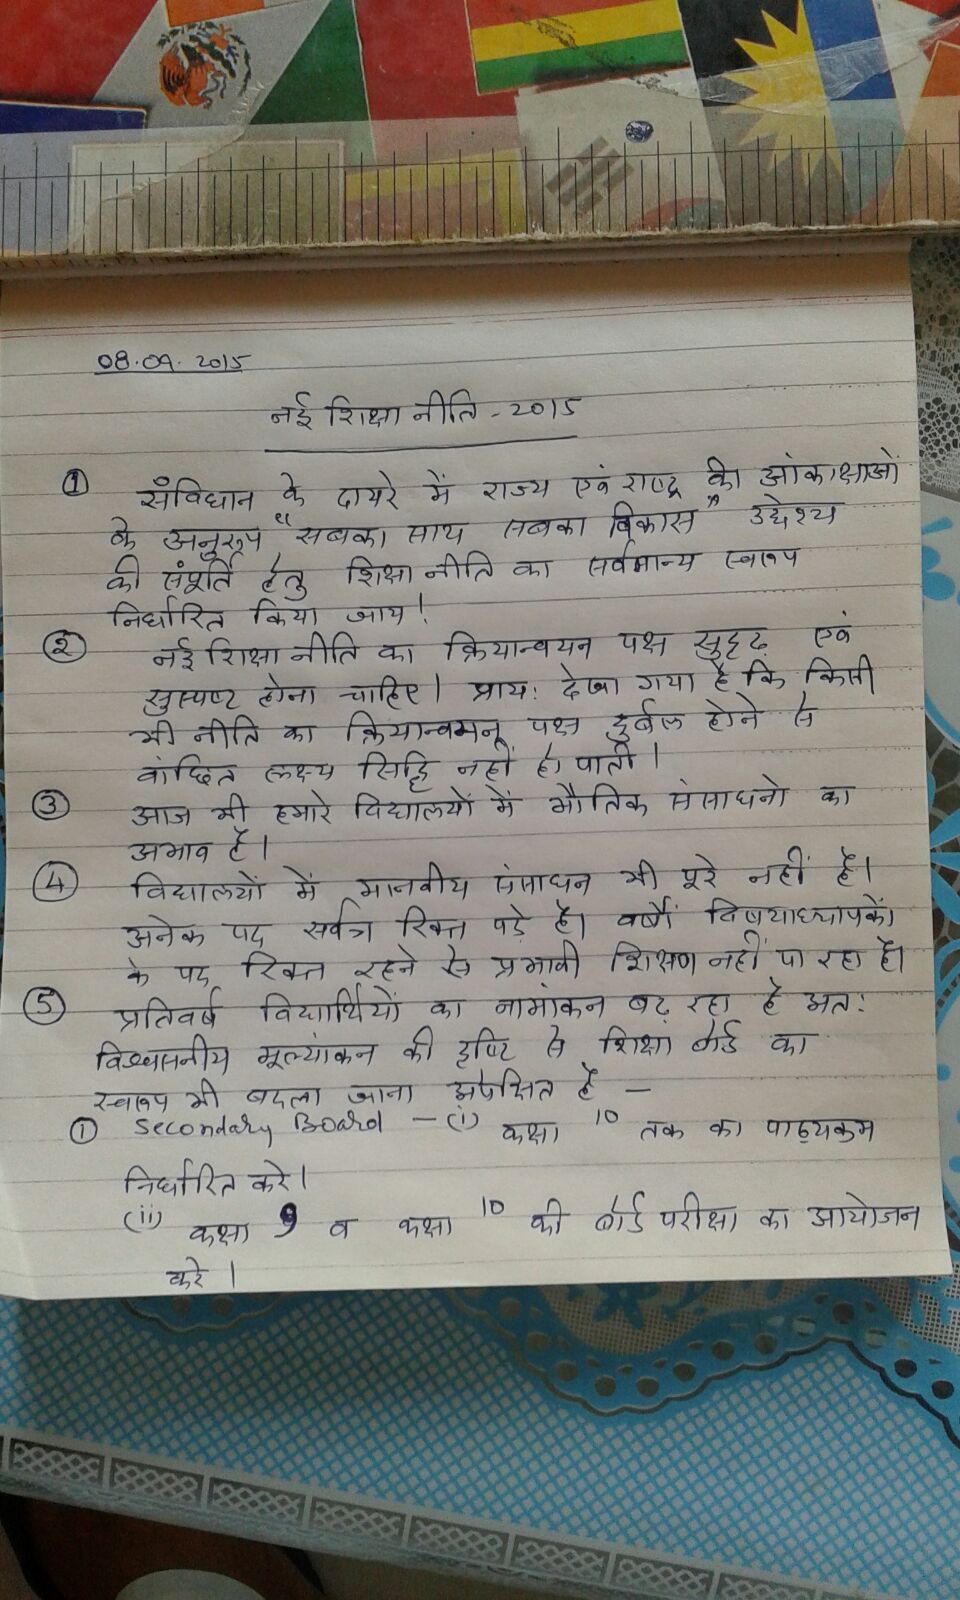 08.09.2015
नई शिक्षा नीति - 2015
① संविधान के दायरे में राज्य एवं राष्ट्र की आंकाक्षाओं
के अनुरूप "सबका साथ सबका विकास" उद्देश्य
की संपूर्ति हेतु शिक्षा नीति का सर्वमान्य स्वरूप
निर्धारित किया जाय!
② नई शिक्षा नीति का क्रियान्वयन पक्ष सुदृढ़ एवं
सुस्पष्ट होना चाहिए। प्राय: देखा गया है कि किसी
भी नीति का क्रियान्वयन पक्ष दुर्बल होने से
वांछित लक्ष्य सिद्धि नहीं हो पाती।
③ आज भी हमारे विद्यालयों में भौतिक संसाधनो का
अभाव है।
④ विद्यालयों में मानवीय संसाधन भी पूरे नहीं हैं।
अनेक पद सर्वत्र रिक्त पड़े है। वर्षों विषयाध्यापकों
के पद रिक्त रहने से प्रभावी शिक्षण नहीं पा रहा है।
⑤ प्रतिवर्ष विद्यार्थियों का नामांकन बढ़ रहा है अत:
विश्वसनीय मूल्यांकन की दृष्टि से शिक्षा बोर्ड का
स्वरूप भी बदला जाना अपेक्षित है —
① Secondary Board — (i) कक्षा 10 तक का पाठ्यक्रम
निर्धारित करे।
(ii) कक्षा 9 व कक्षा 10 की बोर्ड परीक्षा का आयोजन
करे।